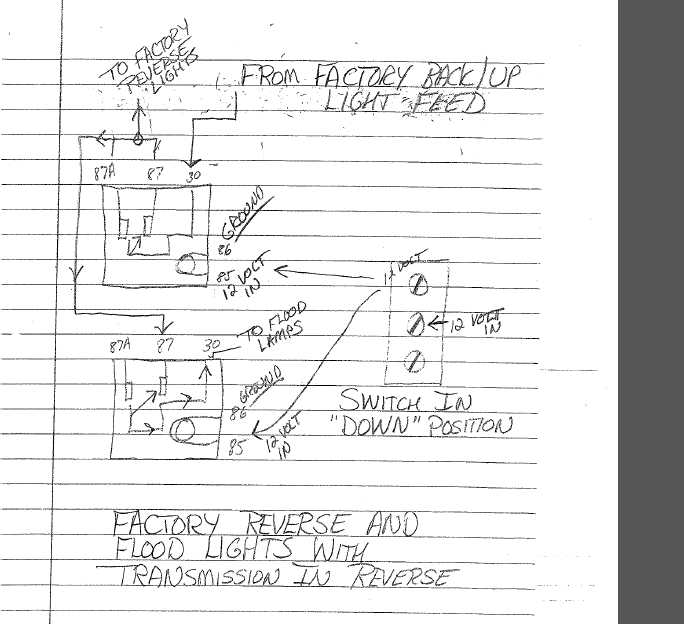 TO FACTORY
REVERSE
LIGHTS
FROM FACTORY BACK/UP
LIGHT FEED
87A 87 30
GROUND
86
85
12 VOLT
IN
12 VOLT
12 VOLT
IN
TO FLOOD
LAMPS
87A 87 30
GROUND
86
85
12 VOLT
IN
SWITCH IN
"DOWN" POSITION
FACTORY REVERSE AND
FLOOD LIGHTS WITH
TRANSMISSION IN REVERSE